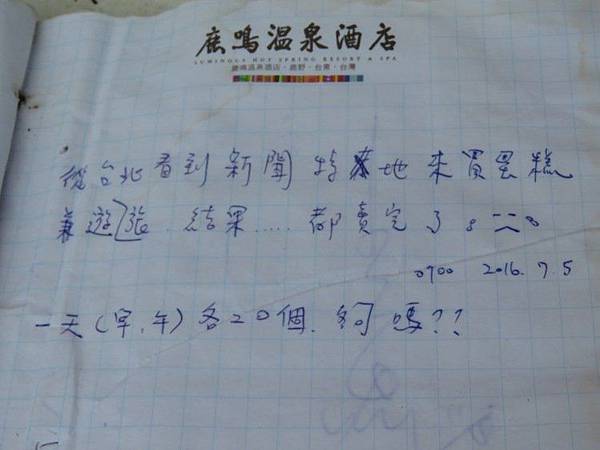 鹿鳴温泉酒店
LUMINOUS HOT SPRING RESORT & SPA
鹿鳴溫泉酒店・鹿野・台東・台灣
從台北看到新聞特地來買蛋糕
兼遊 結果..... 都賣完了
0700 2016.7.5
一天(早.午)各20個.夠嗎??